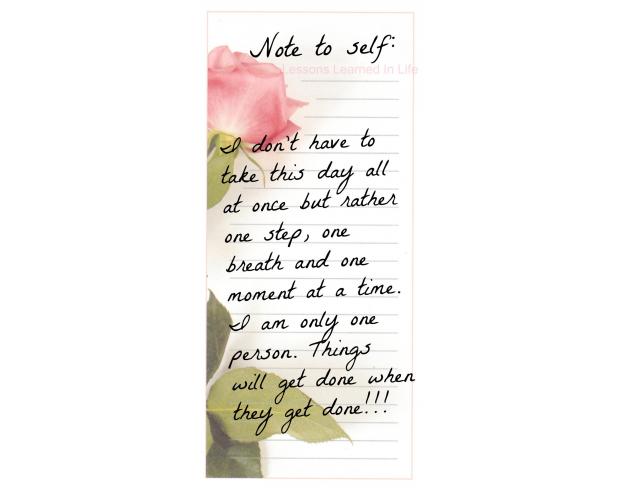 Note to self:
Lessons Learned In Life
I don't have to
take this day all
at once but rather
one step, one
breath and one
moment at a time.
I am only one
person. Things
will get done when
they get done!!!